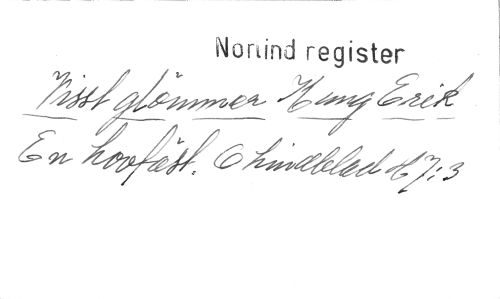 Norlind register
Visst glömmer Kung Erik
En hovfäst. C Lindblad H 7:3